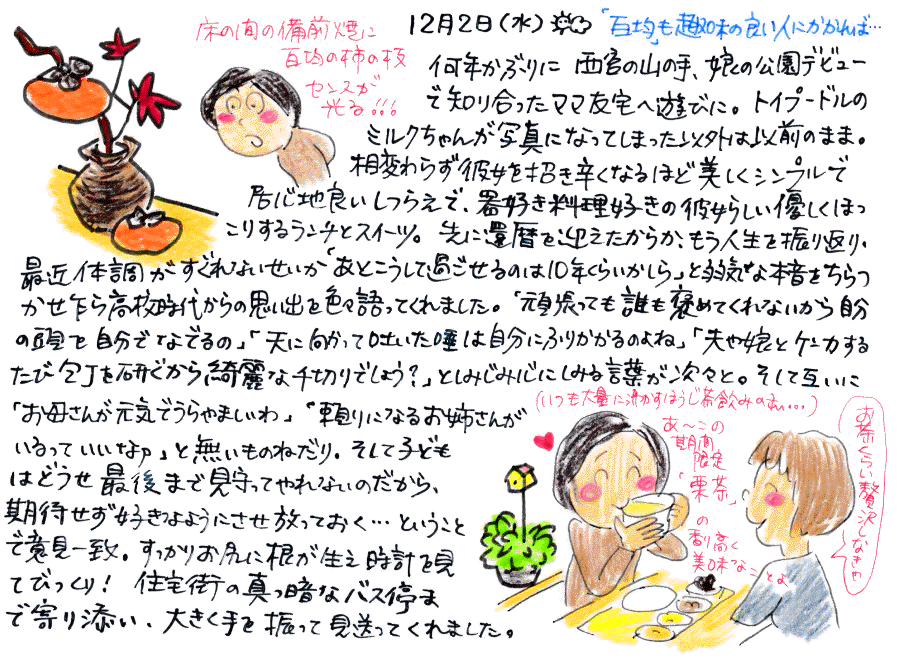 12月2日(水)
「百均」も趣味の良い人にかかれば…
床の間の備前焼に
百均の柿の枝
センスが
光る!!!
何年かぶりに 西宮の山の手、娘の公園デビュー
で知り合ったママ友宅へ遊びに。トイプードルの
ミルクちゃんが写真になってしまった以外は以前のまま。
相変わらず彼女を招き辛くなるほど美しくシンプルで
居心地良いしつらえで、器好き料理好きの彼女らしい優しくほっ
こりするランチとスイーツ。先に還暦を迎えたからか、もう人生を振り返り、
最近体調がすぐれないせいか「あとこうして過ごせるのは10年くらいかしら」と弱気な本音をちらつ
かせ乍ら高校時代からの思い出を色々語ってくれました。「頑張っても誰も褒めてくれないから自分
の頭を自分でなでるの」「天に向かって吐いた唾は自分にふりかかるのよね」「夫や娘とケンカする
たび包丁を研ぐから綺麗な千切りでしょう?」としみじみ心にしみる言葉が次々と。そして互いに
「お母さんが元気でうらやましいわ」「頼りになるお姉さんが
いるっていいなァ」と無いものねだり。そして子ども
はどうせ最後まで見守ってやれないのだから、
期待せず好きなようにさせ放っておく…ということ
で意見一致。すっかりお尻に根が生え時計を見
てびっくり! 住宅街の真っ暗なバス停ま
で寄り添い、大きく手を振って見送ってくれました。
(いつも大量に沸かすほうじ茶飲みの私…)
あ〜この
期間
限定
「栗茶」
の
香り高く
美味なことよ
お茶くらい贅沢しなきゃ